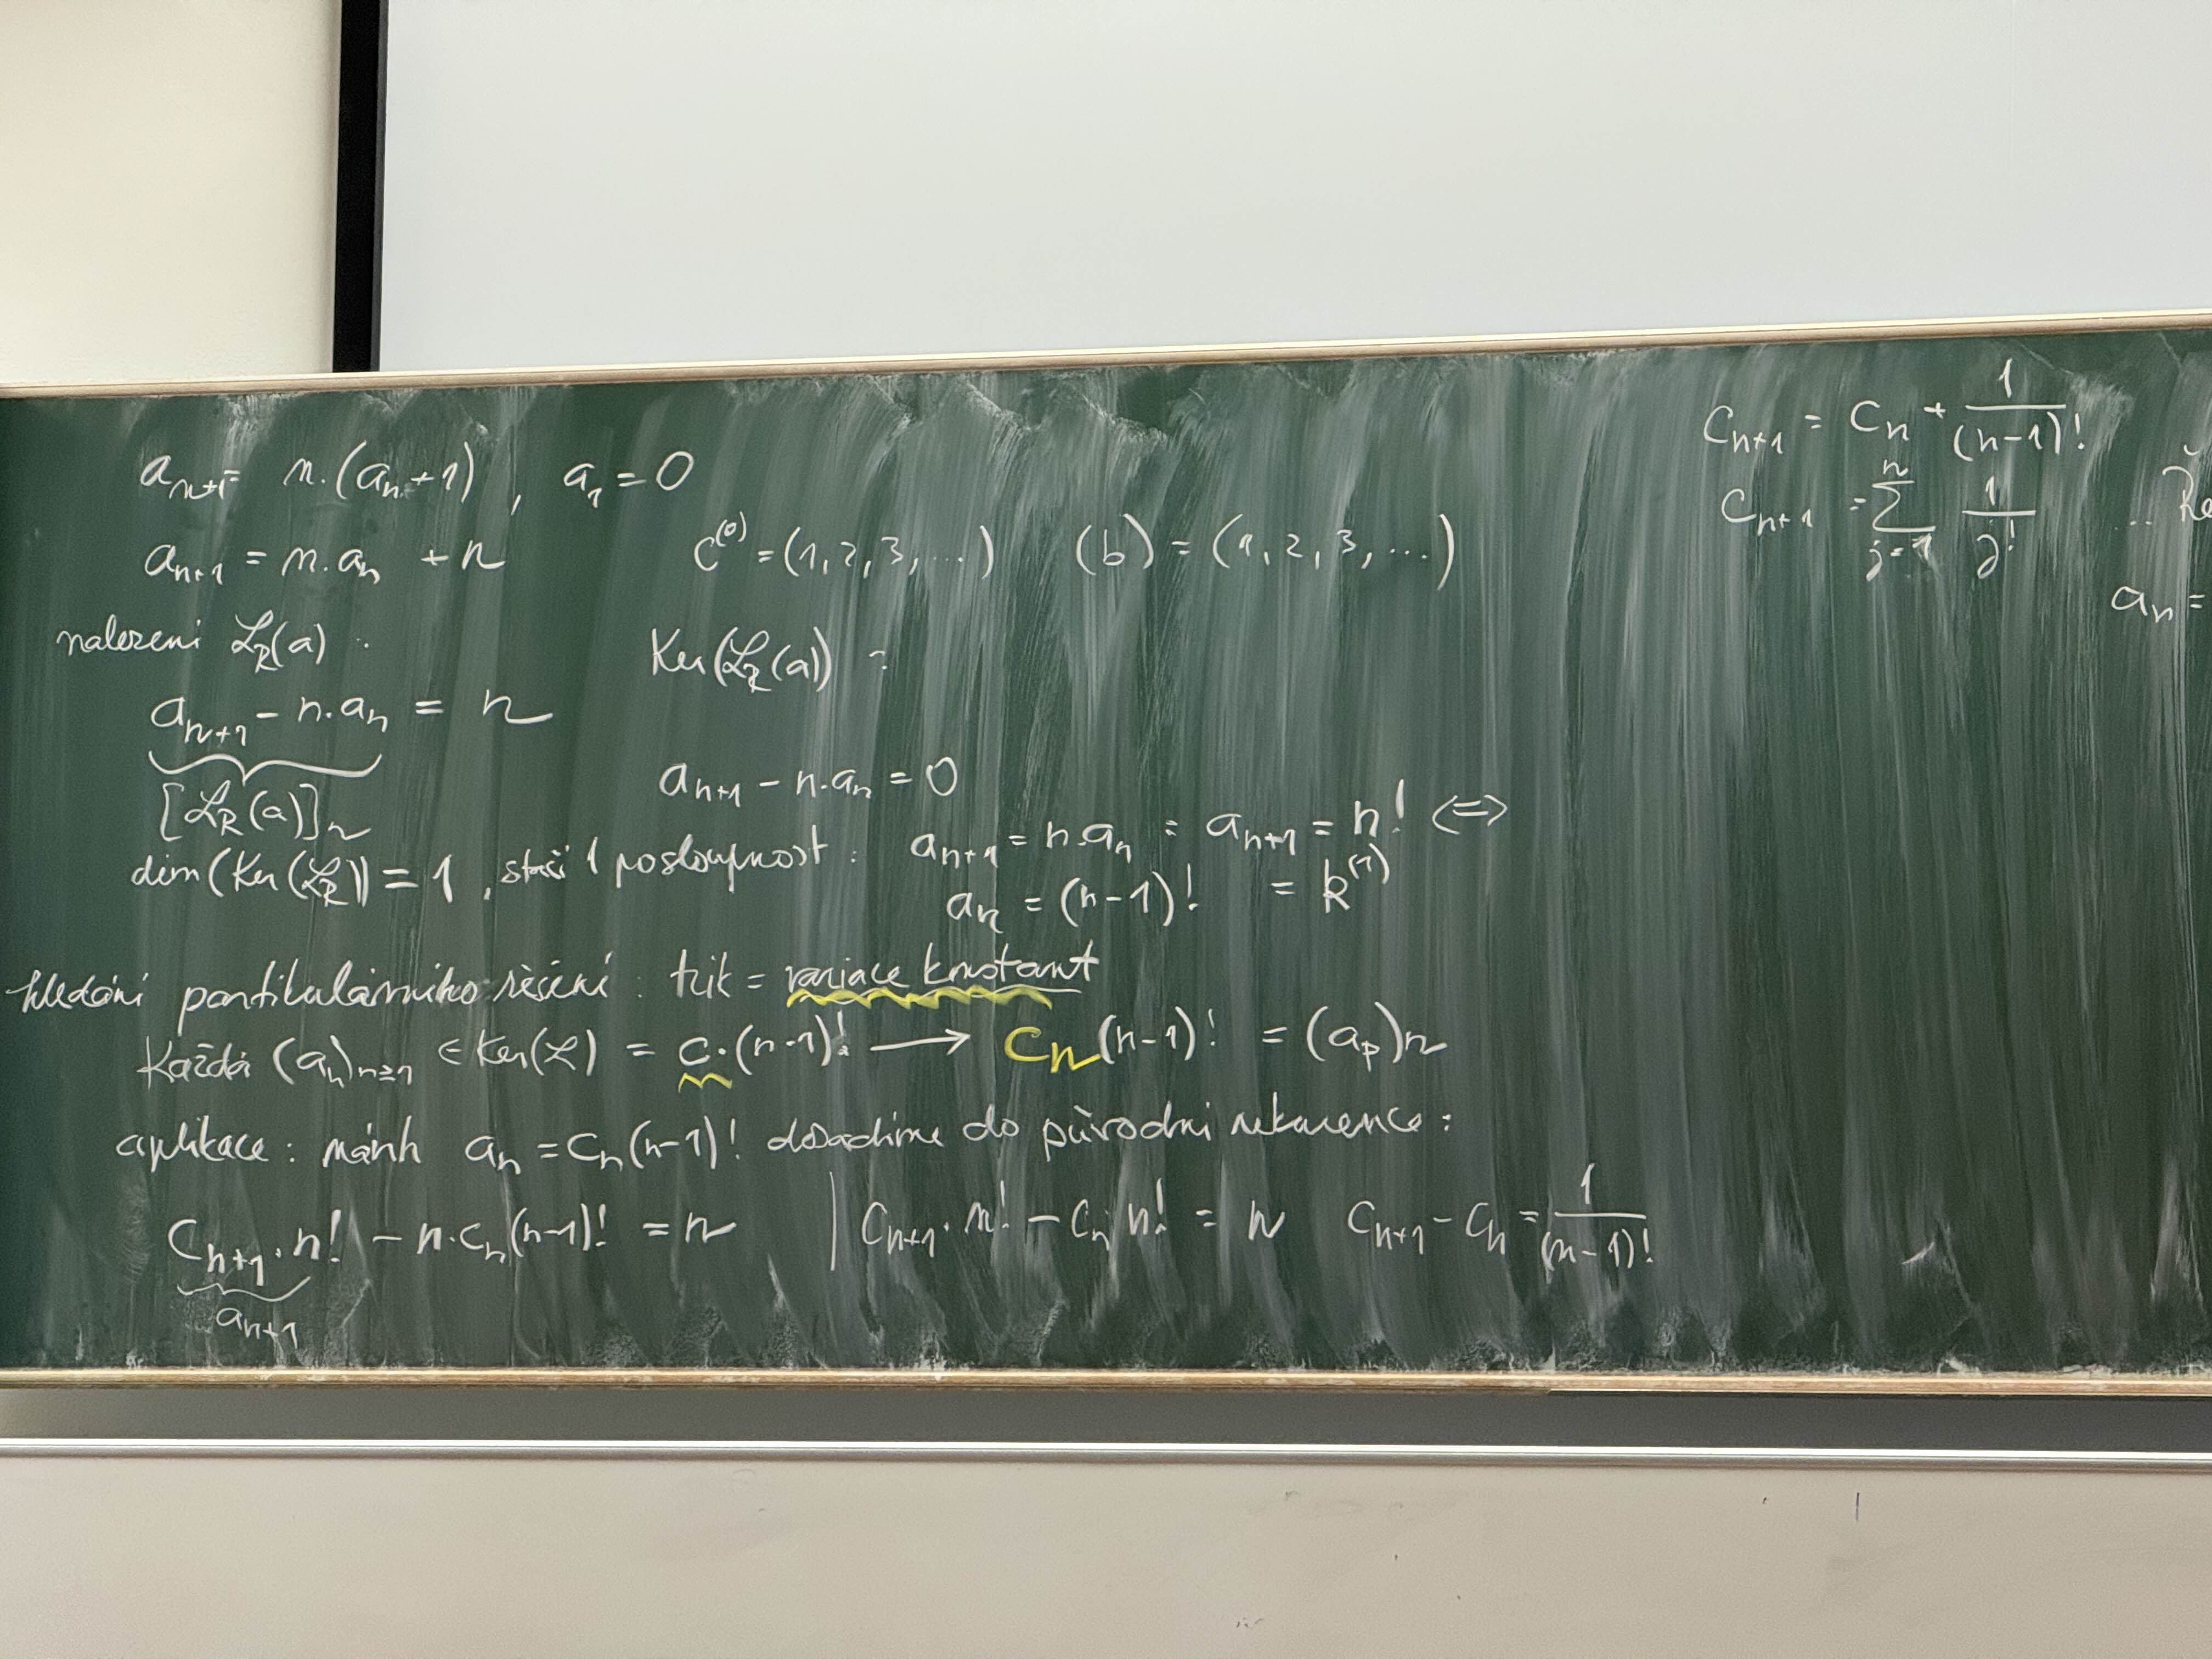 a_{n+1} = n.(a_n+1), a_1 = 0
a_{n+1} = n.a_n + n
c^{(0)} = (1, 2, 3, ...) (b) = (1, 2, 3, ...)
nalezení ℒ_R(a) :
Ker(ℒ_R(a)) :
a_{n+1} - n.a_n = n
[ℒ_R(a)]_n
a_{n+1} - n.a_n = 0
dim(Ker(ℒ_R)) = 1, stačí 1 posloupnost : a_{n+1} = n.a_n : a_{n+1} = n! ⟺
a_n = (n-1)! = k^{(1)}
hledání partikulárního řešení : trik = variace konstant
Každá (a_n)_{n≥1} ∈ Ker(ℒ) = c.(n-1)! ⟶ c_n(n-1)! = (a_p)_n
aplikace : mánh a_n = c_n(n-1)! dosadíme do původní rekurence :
c_{n+1}.n! - n.c_n(n-1)! = n | c_{n+1}.n! - c_n n! = n c_{n+1} - c_n = 1/(n-1)!
a_{n+1}
c_{n+1} = c_n + 1/(n-1)!
c_{n+1} = ∑_{j=1}^{n} 1/j! ... Ře
a_n =